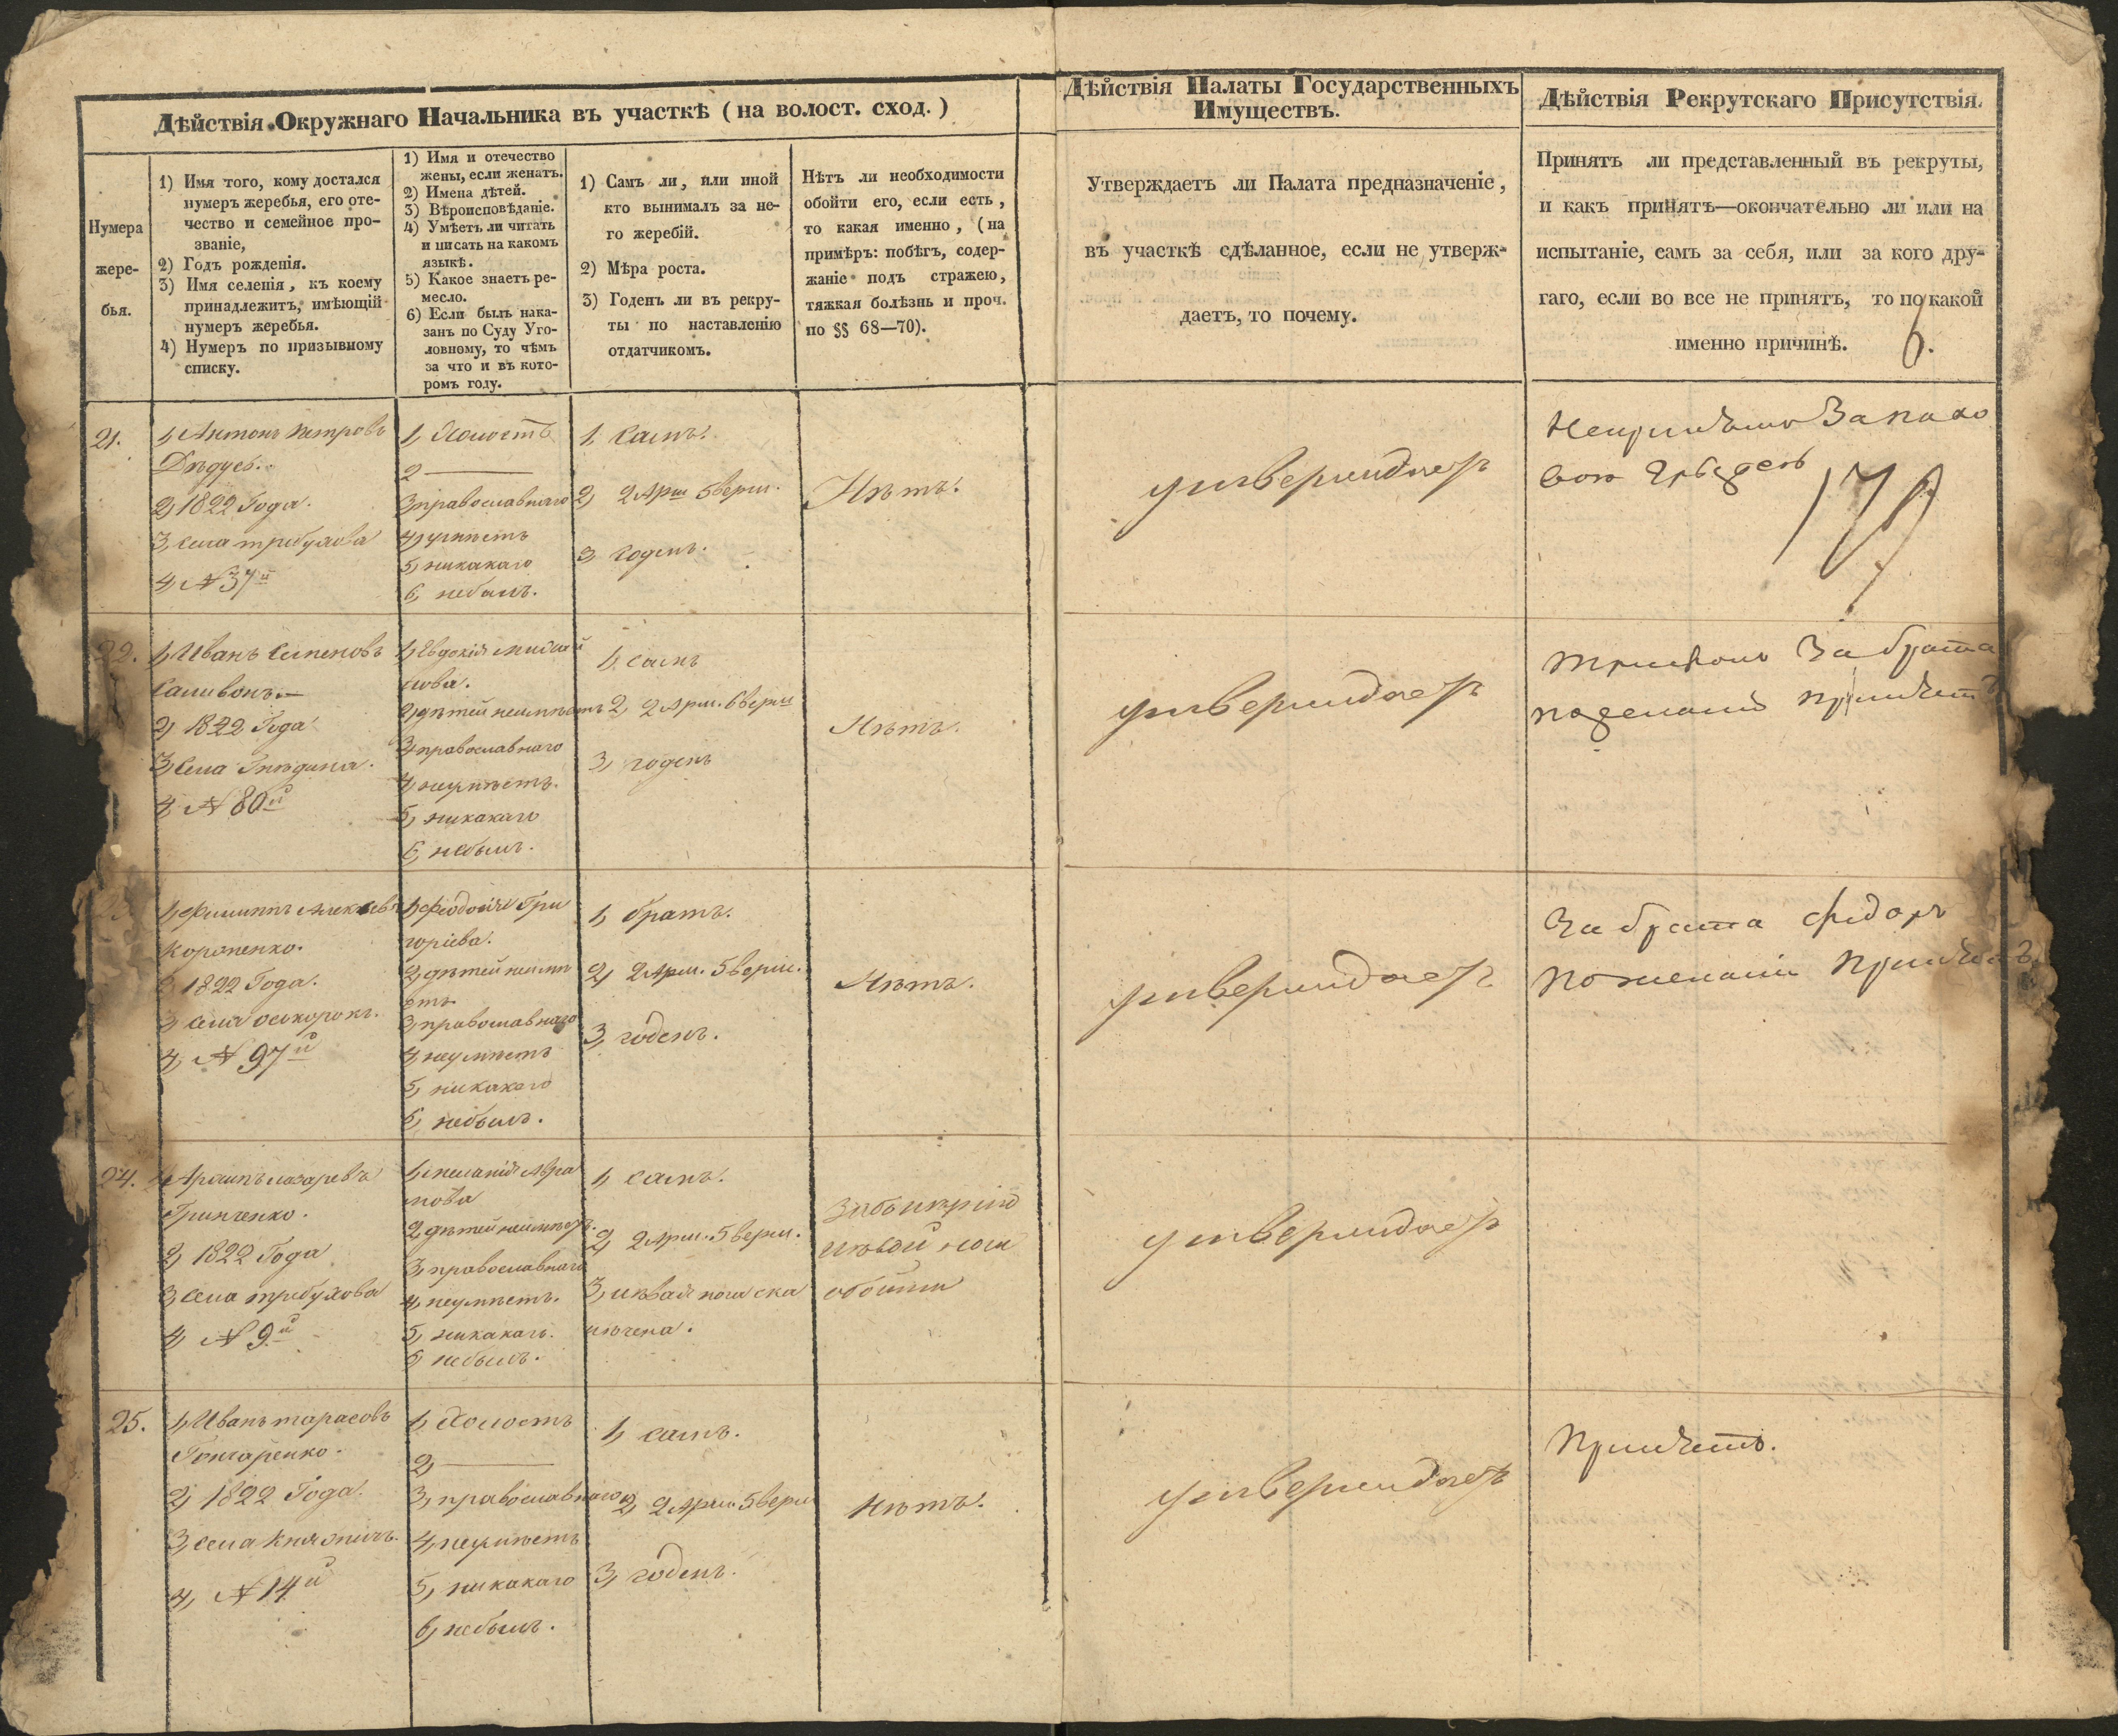 Дѣйствія Окружнаго Начальника въ участкѣ ( на волост. сход. )
Нумера
жере-
бья.
1) Имя того, кому достался
нумеръ жеребья, его оте-
чество и семейное про-
званіе,
2) Годъ рожденія.
3) Имя селенія, къ коему
принадлежитъ, имѣющій
нумеръ жеребья.
4) Нумеръ по призывному
списку.
1) Имя и отечество
жены, если женатъ.
2) Имена дѣтей.
3) Вѣроисповѣданіе.
4) Умѣетъ ли читать
и писать на какомъ
языкѣ.
5) Какое знаетъ ре-
месло.
6) Если былъ нака-
занъ по Суду Уго-
ловному, то чѣмъ
за что и въ кото-
ромъ году.
1) Самъ ли, или иной
кто вынималъ за не-
го жеребій.
2) Мѣра роста.
3) Годенъ ли въ рекру-
ты по наставленію
отдатчикомъ.
Нѣтъ ли необходимости
обойти его, если есть,
то какая именно, (на
примѣръ: побѣгъ, содер-
жаніе подъ стражею,
тяжкая болѣзнь и проч.
по §§ 68—70).
Дѣйствія Палаты Государственныхъ
Имуществъ.
Утверждаетъ ли Палата предназначеніе,
въ участкѣ сдѣланное, если не утверж-
даетъ, то почему.
Дѣйствія Рекрутскаго Присутствія.
Принятъ ли представленный въ рекруты,
и какъ принятъ—окончательно ли или на
испытаніе, самъ за себя, или за кого дру-
гаго, если во все не принятъ, то по какой
именно причинѣ.
21.
1, Антонъ Петровъ
2, 1822 Года.
3, села требухова
4, N 37й
1, Холостъ
2
3, православнаго
4, умѣетъ
5, никакаго
6, небылъ.
1, Самъ.
2, 2 Арш 5 верш.
3, Годенъ.
Нѣтъ.
утверждаетъ
22.
1, Иванъ Семеновъ
Саливонъ.
2, 1822 Года
3, Села Гнѣдина.
4, N 80й
1, Евдокія Михай
лова.
2, дѣтей неимѣетъ
3, православнаго
4, неумѣетъ.
5, никакаго
6, небылъ.
1, самъ
2, 2 Арш. 6 верш
3, годенъ
Нѣтъ.
утверждаетъ
за брата
23.
1, Филиппъ Алексѣевъ
Короленко.
2, 1822 Года.
3, села оскорокъ.
4, N 97й
1, Феодосія Гри
горіева.
2, дѣтей неимѣ
етъ
3, православнаго
4, неумѣетъ
5, никакаго
6, небылъ.
1, братъ.
2, 2 Арш. 5 верш.
3, годенъ.
Нѣтъ.
утверждаетъ
За брата Федоръ
24.
Гринченко.
2, 1822 Года
3, Села требухова
4, N 9й
1, Меланія Авра
мова
2, дѣтей неимѣетъ.
3, православнаго
4, неумѣетъ.
5, никакаго.
6, небылъ.
1, самъ.
2, 2 Арш. 5 верш.
3, лѣвая нога ска
лѣчена.
лѣвой ноги
обойти
утверждаетъ
25.
1, Иванъ тарасовъ
Гончаренко.
2, 1822 Года.
3, села Княжичъ.
4, N 14й
1, Холостъ
2,
3, православнаго
4, неумѣетъ
5, никакаго
6, небылъ.
1, самъ.
2, 2 Арш 5 верш
3, годенъ.
Нѣтъ.
утверждаетъ
Принятъ.